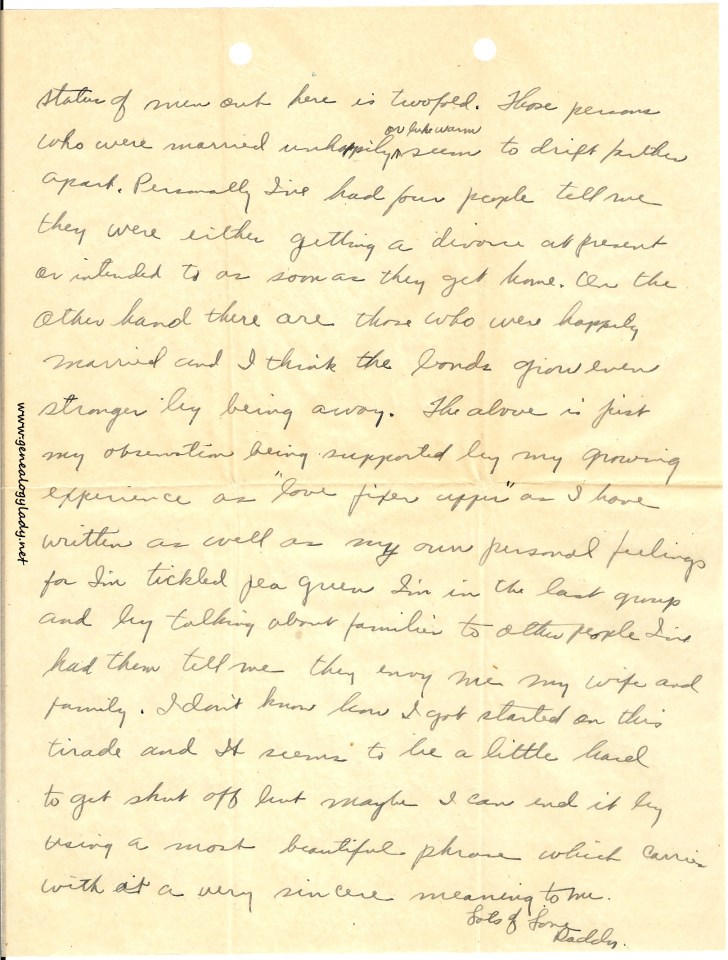 status of men out here is twofold. Those persons
or luke warm
who were married unhappily seem to drift further
apart. Personally I've had four people tell me
they were either getting a divorce at present
or intended to as soon as they get home. On the
other hand there are those who were happily
married and I think the bonds grow even
stronger by being away. The above is just
my observation being supported by my growing
experience as "love fixer upper" as I have
written as well as my own personal feelings
for I'm tickled pea green I'm in the last group
and by talking about families to other people I've
had them tell me they envy me my wife and
family. I don't know how I got started on this
tirade and It seems to be a little hard
to get shut off but maybe I can end it by
using a most beautiful phrase which carries
with it a very sincere meaning to me.
Lots of Love
Daddy.
www.genealogylady.net